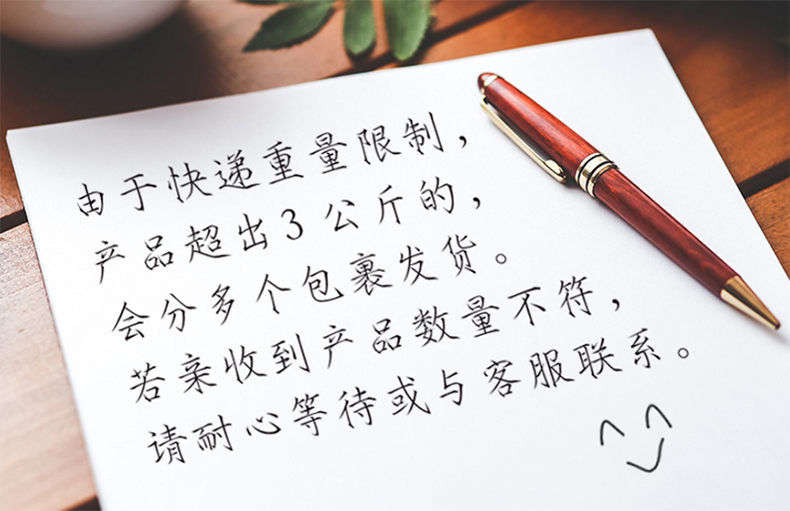 由于快递重量限制，
产品超出3公斤的，
会分多个包裹发货。
若亲收到产品数量不符，
请耐心等待或与客服联系。